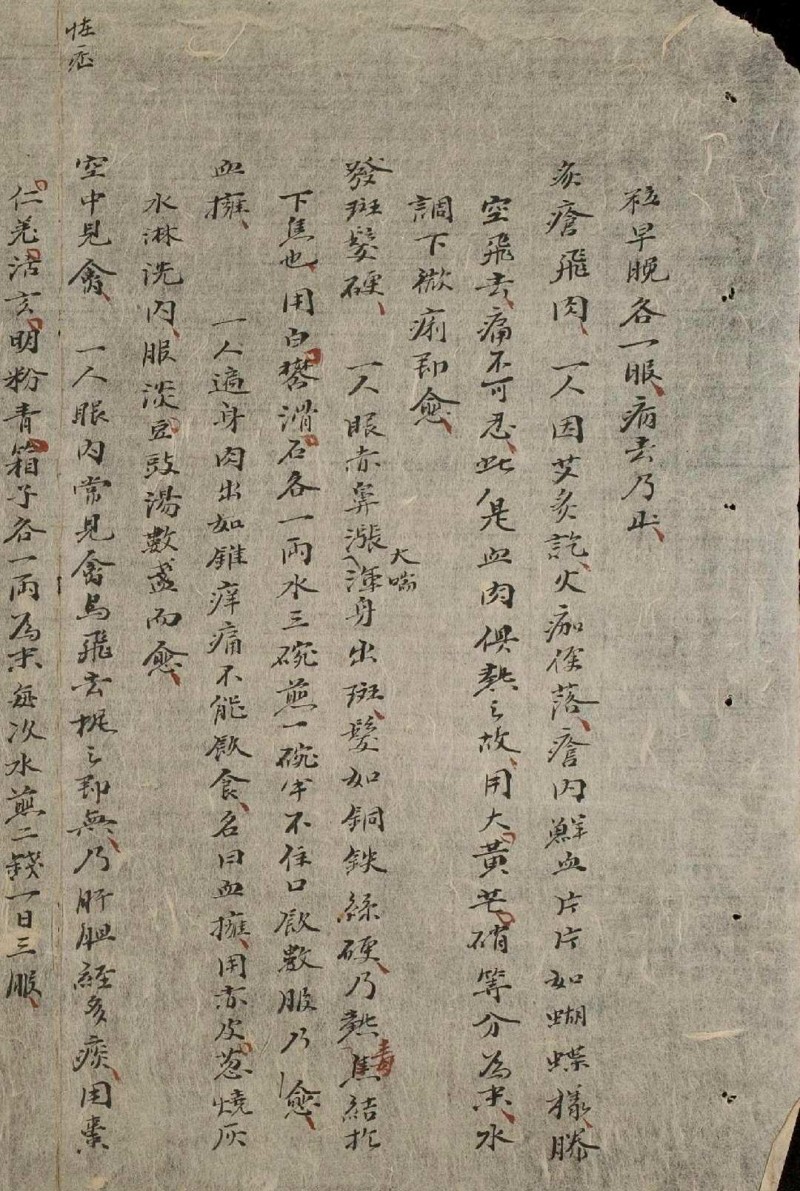 粒早晚各一服病去乃止
炙瘡飛肉 一人因艾炙訖火痂俟落瘡内鮮血片片如蝴蝶樣騰
空飛去痛不可忍此是血肉俱熱之故用大黄芒硝等分為末水
調下微痢即愈
發斑髮硬 一人眼赤鼻漲大喘渾身出斑髮如銅鉄絲硬乃熱毒焦結於
下焦也用白礬滑石各一兩水三碗煎一碗半不住口飲數服乃愈
血擁 一人遍身肉出如錐痒痛不能飲食名曰血擁用赤皮葱燒灰
水淋洗内服淡豆豉湯數盞而愈
空中見禽 一人眼内常見禽鳥飛去捉之即無乃肝胆經多痰用棗
仁羌活玄明粉青葙子各一兩為末每次水煎二錢一日三服
怪症